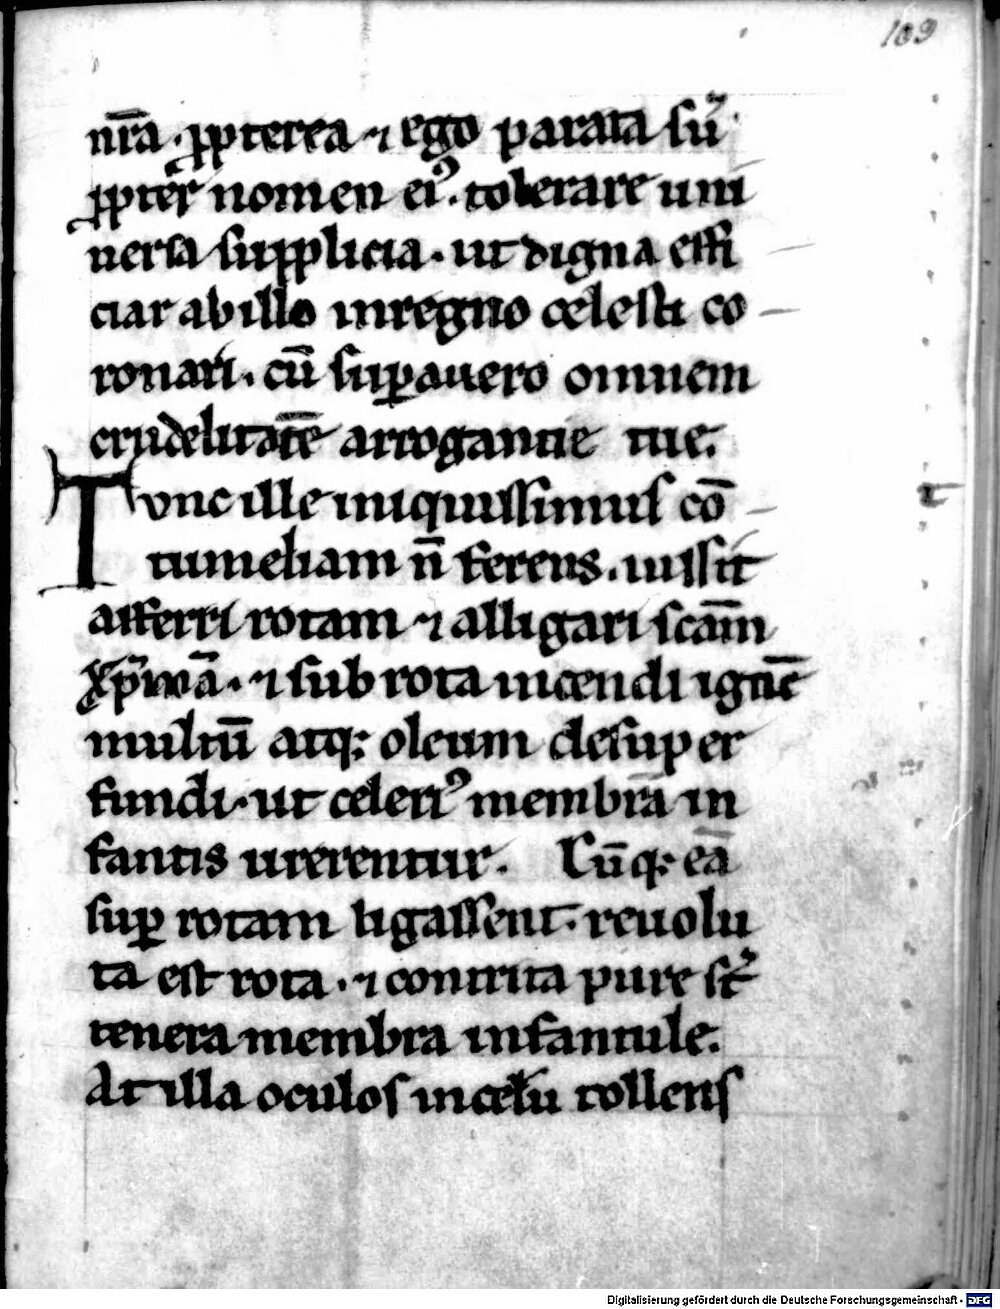 109
nr̄a · ꝓpterea ⁊ ego parata sū·
ꝓpter nomen eiꝰ · tolerare uni
uersa supplicia · ut digna effi
ciar ab illo in regno celesti co
ronari · cū suꝑauero omnem
crudelitatē arrogantie tue.
Tvnc ille iniquissimus cō
tumeliam n̄ ferens · iussit
afferri rotam ⁊ alligari scām
xp̄inā · ⁊ sub rota incendi ignē
multū atq; oleum desuper
fundi · ut celeriꝰ membra in
fantis urerentur. Cūq; eā
suꝑ rotam ligassent · reuolu
ta est rota · ⁊ contrita pure st̄
tenera membra infantule.
At illa oculos in celū tollens
Digitalisierung gefördert durch die Deutsche Forschungsgemeinschaft - DFG